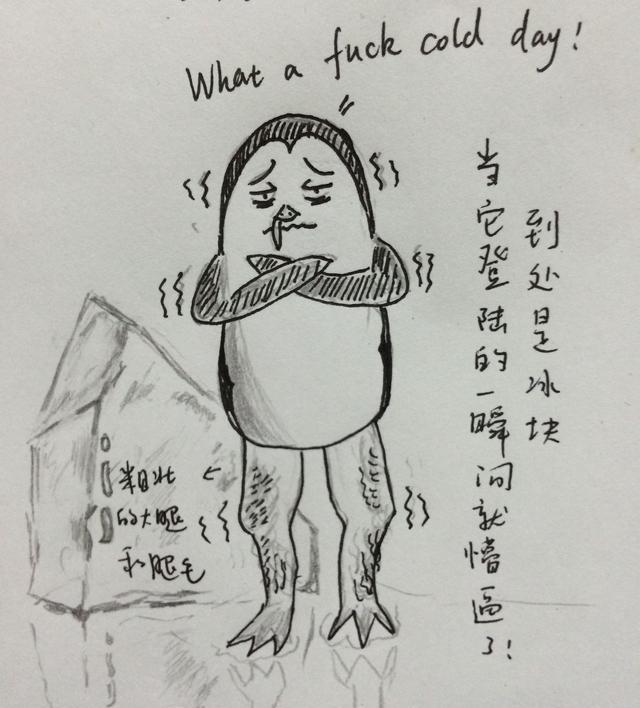 What a fuck cold day!
到处是冰块
当它登陆的一瞬间就懵逼了!
粗壮
的大腿
和腿毛